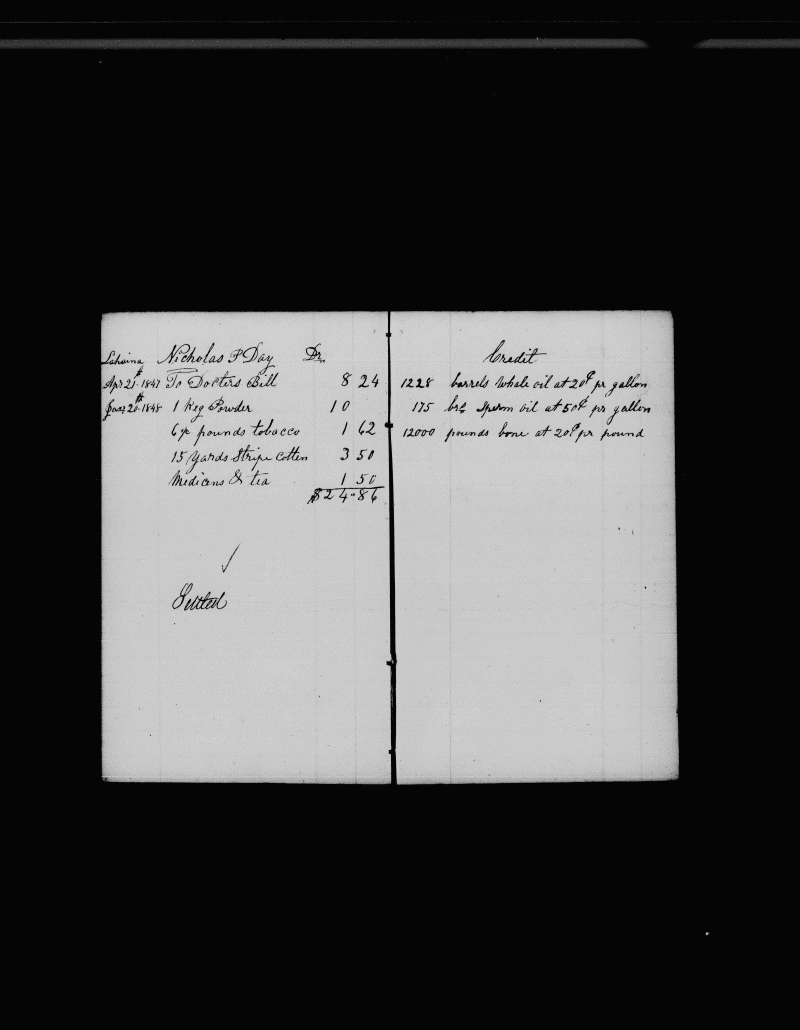 Lahaina Nicholas P Day Dr.
Apr 21st 1847 To Docters Bill 8 24
Jan 20th 1848 1 Keg Powder 10
pounds tobacco 1 62
15 Yards Stripe Cotten 3 50
Medicens & tea 1 50
$24.86
✓
Settled
Credit
1228 barrels Whale oil at 20¢ pr gallon
175 brls Sperm oil at 50¢ pr gallon
12000 pounds bone at 20¢ pr pound